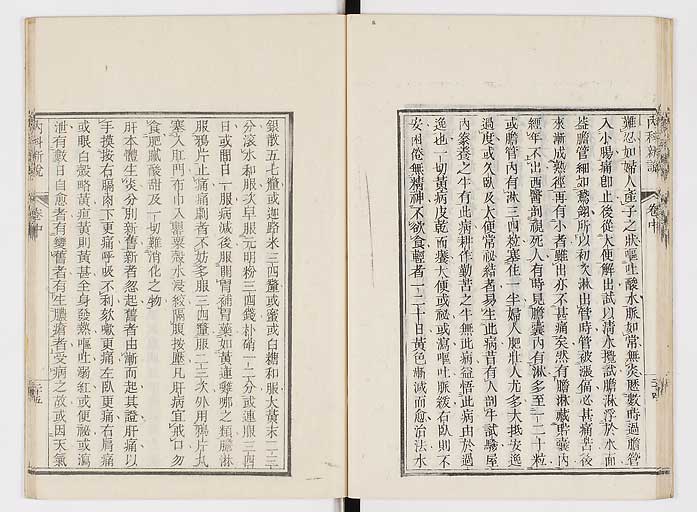 內科新說 卷中 二十四
難忍如婦人產子之狀嘔吐酸水脈如常無炎歷數時過膽管
入小腸痛卽止後從大便解出試以清水攪試膽淋浮於水面
葢膽管細如鵞翎所以初次淋出管時管被漲傷必甚痛苦後
來漸成熟徑再有小者雖出亦不甚痛矣然有膽淋藏畤囊內
經年不出西醫剖視死人有時見膽囊內有淋多至一二十粒
或膽管內有淋三四粒塞住一半婦人肥壯人尤多大抵安逸
過度久臥及大便常祕結者易生此病昔有人剖牛試驗屋
內豢養之牛有此病耕作勤苦之牛無此病益悟此病由於過
逸也一切黃病皮乾而癢大便或祕或瀉嘔吐脈緩右臥則不
安困倦無精神不欲食輕者一二十日黃色漸減而愈治法水
銀散五七釐或迦路米三四釐或蜜或白糖和服大黃末一二三
分滾水和服次早服元明粉三四錢朴硝一二分或連服三四
日或間日一服病減後服開胃補胃藥如黃連嚟哪之類膽淋
服鴉片止痛痛劇者不妨多服三四釐服二三次外用鴉片丸
塞入肛門布巾入罌粟殼水浸絞隔腹按壓凡肝病宜戒口勿
食肥膩酸甜及一切難消化之物
肝本體生炎分別新舊新者忽起舊者由漸而起其證肝痛以
手摸按右膈肉下更痛呼吸不利欬嗽更痛左臥更痛右肩痛
或眼白殼略黃疸黃則黃甚全身發熱嘔吐溺紅或便祕或瀉
泄有數日自愈者有變舊者有生膿瘡者受病之故或因天氣
內科新說 卷中 二十五